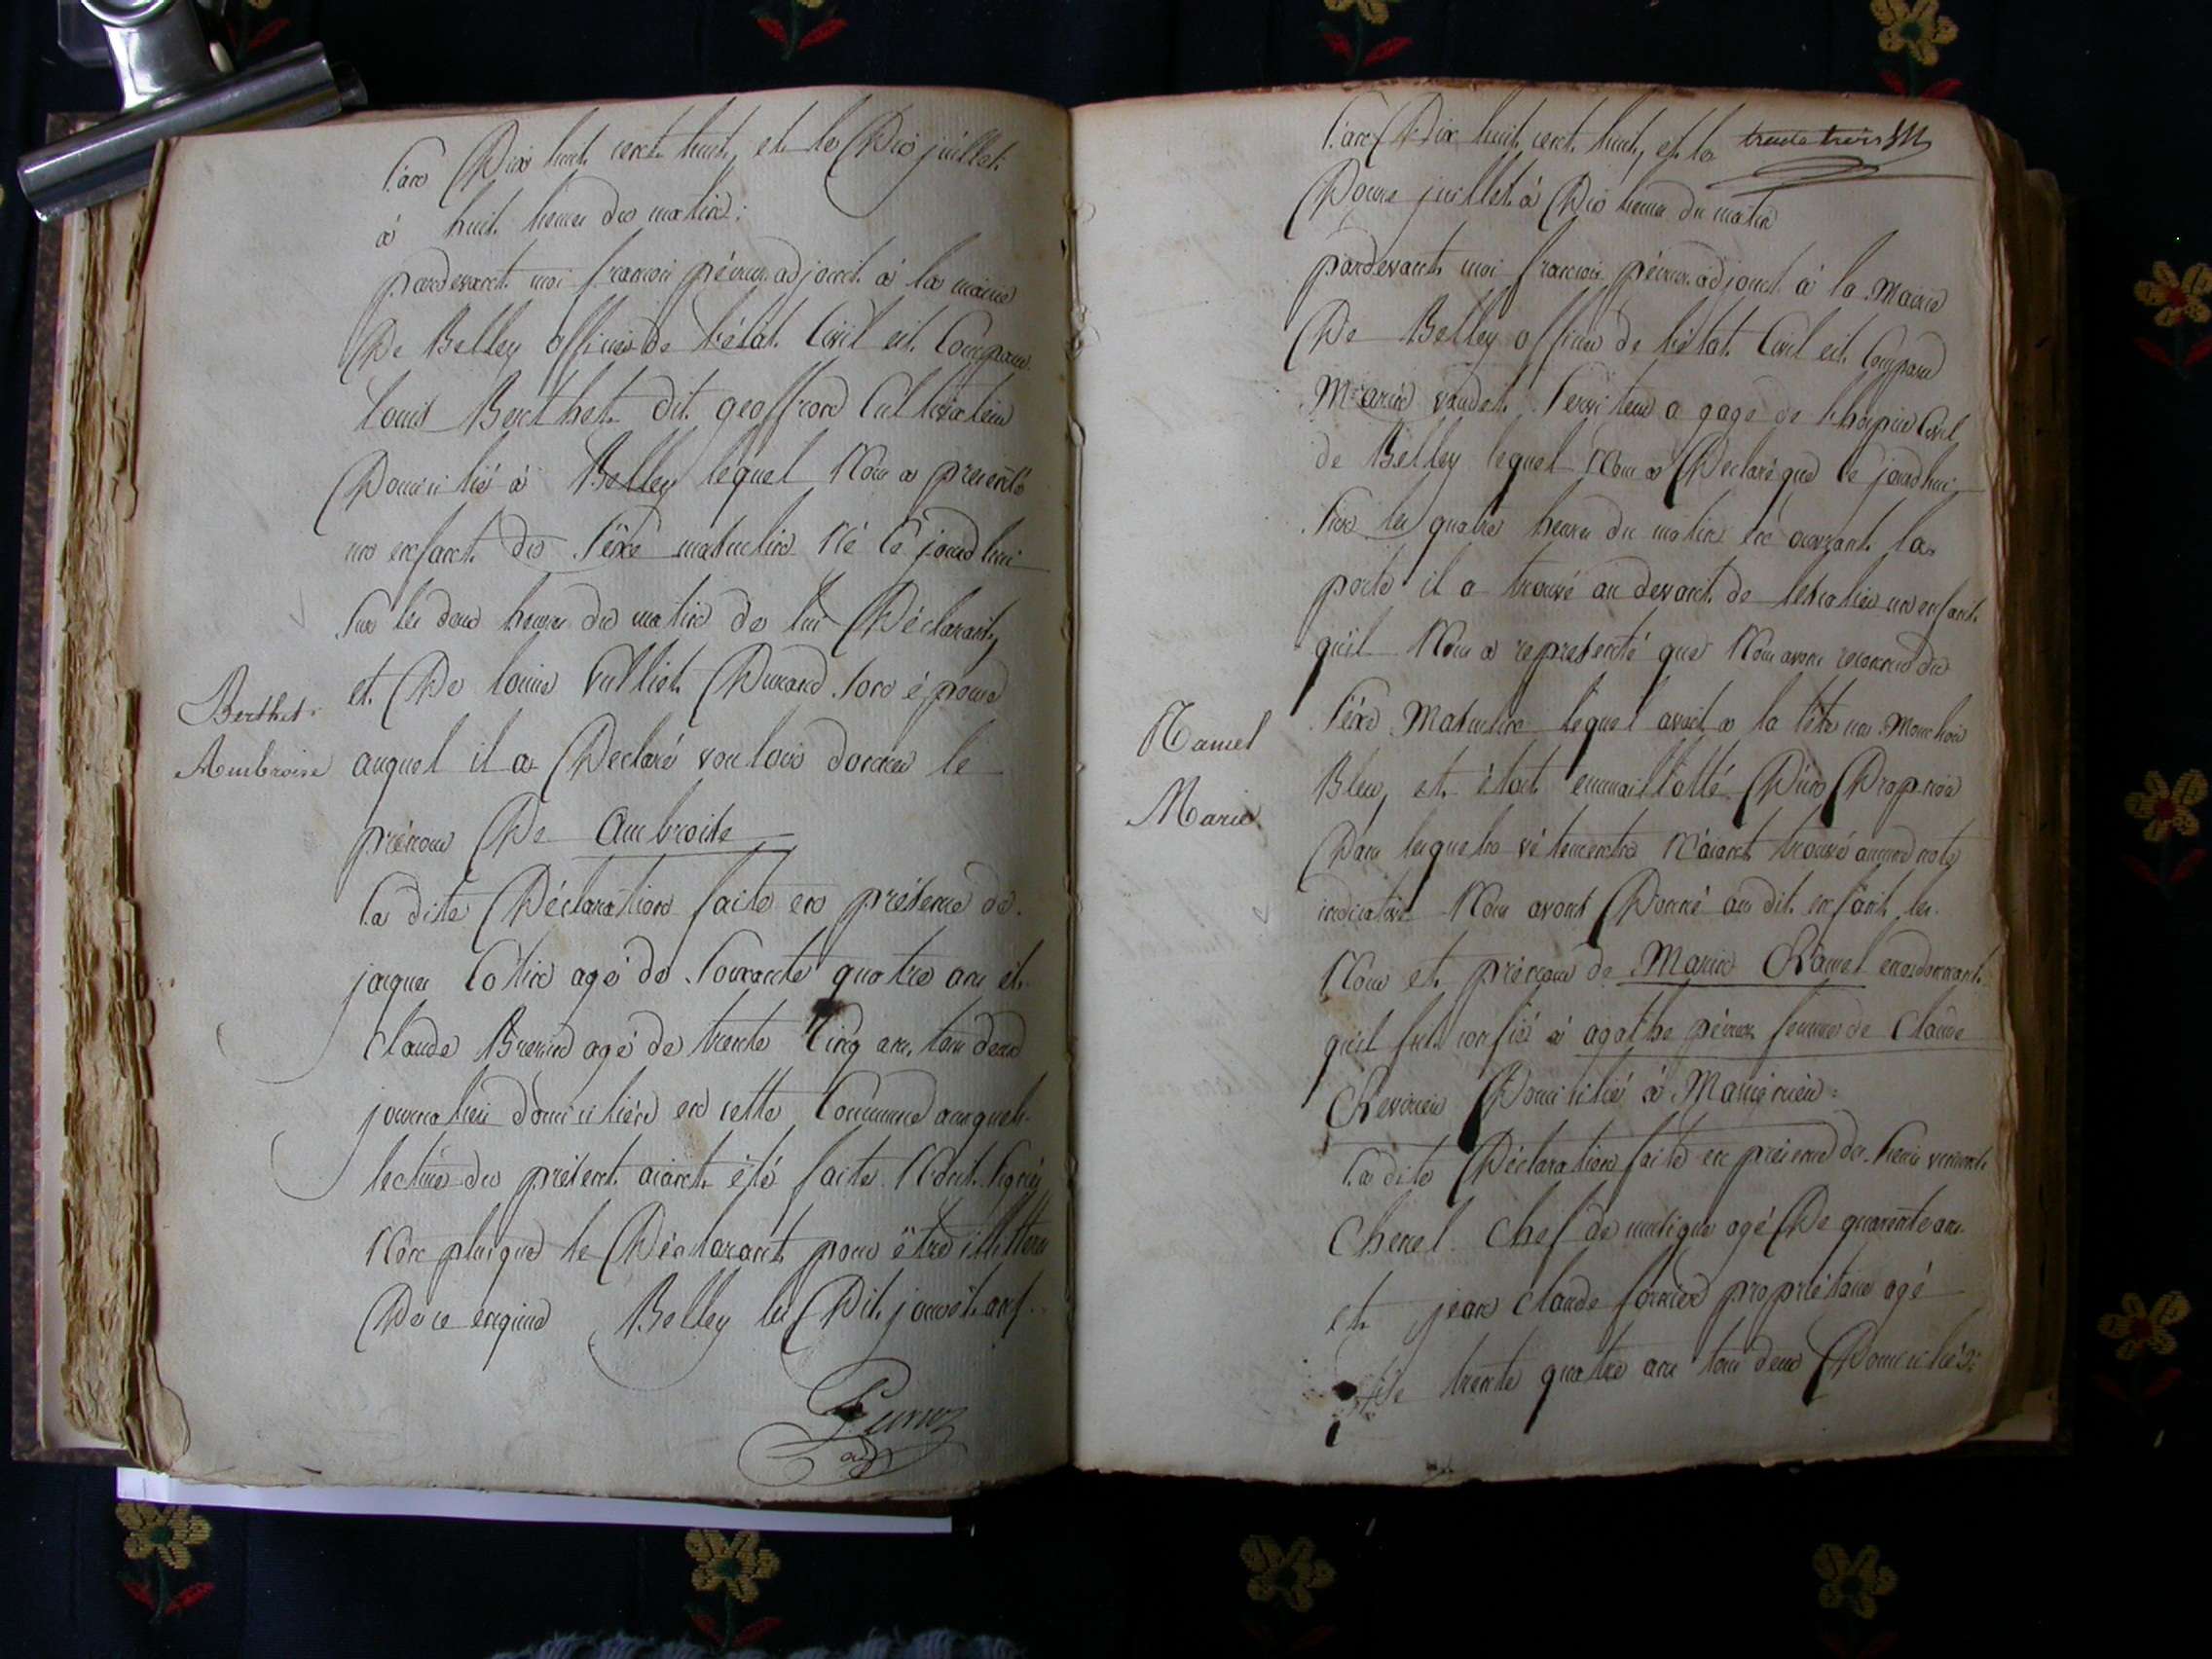 l'an Dix huit cent huit, et le Dix juillet
à huit heures du matin:
pardevant moi francois péruz adjoint à la mairie
De Belley officier de l'état Civil est Comparu
Louis Berthet dit geoffron Cultivateur
Domicilié à Belley lequel Nous a presenté
un enfant du séxe masculin Né ce jourdhui
sur les deux heures du matin de lui Déclarant,
et De louise Vulliet Durand son épouse
Berthet
Ambroise
auquel il a Declaré vouloir donner le
prénom De Ambroise
la dite Déclaration faite en présence de
jacques Cotin agé de soixante quatre ans et
Claude agé de trente Cinq ans, tous deux
journaliers domiciliés en cette Commune auxquels
lecture du présent aiant été faite N'ont signés
Non plus que le Déclarant pour être illitteré
De ce enquis Belley les Dit jour et an
Peruz
adj
trente trois
l'an Dix huit cent huit, et le
Douze juillet à Dix heures du matin
pardevant moi francois péruz adjoint à la Mairie
De Belley officier de l'état Civil est Comparu
vaudet serviteur a gage de l'hospice Civil
de Belley lequel Nous a Declaré que ce jourdhui
sur les quatre heures du matin en ouvrant la
porte il a trouvé au devant de lescalier un enfant
qu'il Nous a representé que Nous avons reconnu du
Ramel
Marin
séxe Masculin lequel avoit a la tête un Mouchoir
Bleu, et étoit emmaillotté D'un Drap
Dans lesquels vétements N'aiant trouvé aucune note
indicative Nous avons Donné au dit enfant les
Nom et prénom de Marin Ramel en ordonnant
qu'il fut confié à agathe péruz femme de Claude
Domicilié à
la dite Déclaration faite en présence de
Chenel Chef de musique agé De quarante ans
et jean Claude propriétaire agé
de trente quatre ans tous deux Domiciliés